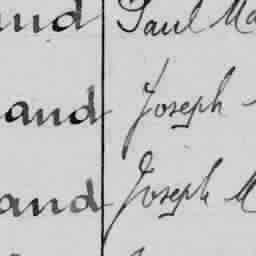 and Paul Ma
and Joseph
and Joseph M